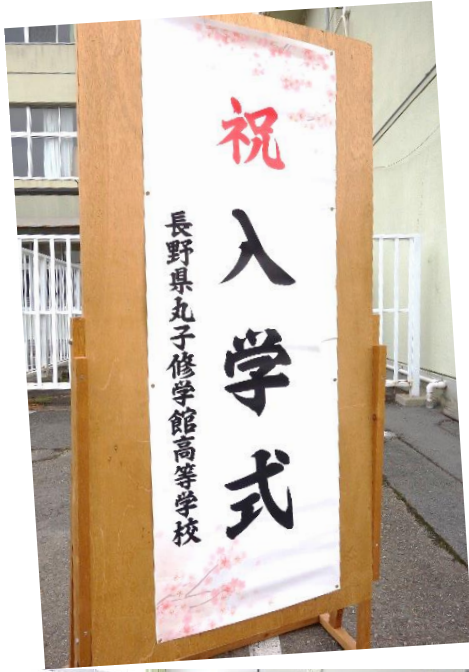 祝入学式
長野県丸子修学館高等学校